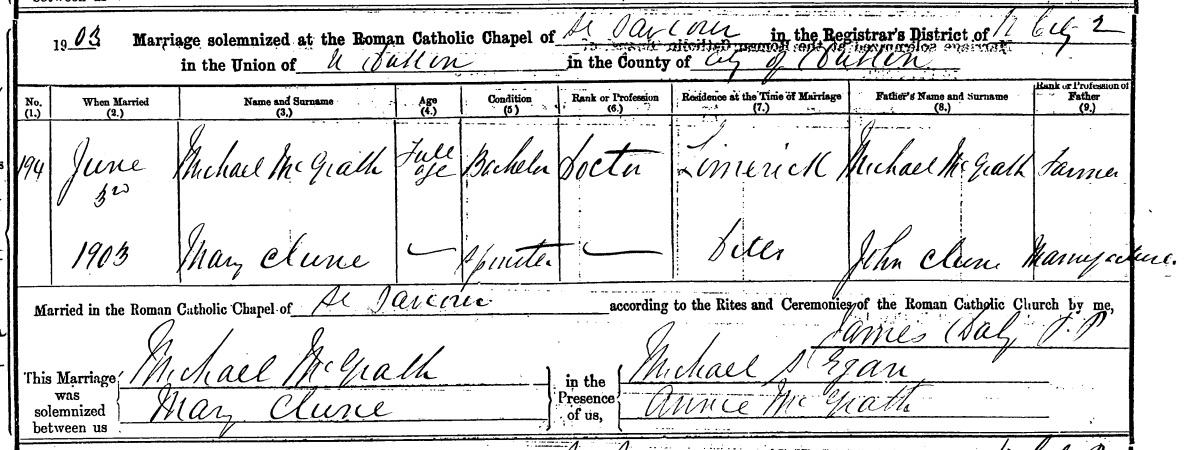 1903 Marriage solemnized at the Roman Catholic Chapel of St Saviour in the Registrar's District of N City 2
in the Union of N Dublin in the County of City of Dublin
No. (1.) When Married (2.) Name and Surname (3.) Age (4.) Condition (5) Rank or Profession (6.) Residence at the Time of Marriage (7.) Father's Name and Surname (8.) Rank or Profession of Father (9.)
194 June 3rd Michael McGrath Full age Bachelor Doctor Limerick Michael McGrath Farmer
1903 Mary Clune — Spinster — Ditto John Clune Manufacturer
Married in the Roman Catholic Chapel of St Saviour according to the Rites and Ceremonies of the Roman Catholic Church by me,
James Daly P.P
This Marriage was solemnized between us Michael McGrath
Mary Clune
in the Presence of us, Michael S Egan
Annie McGrath